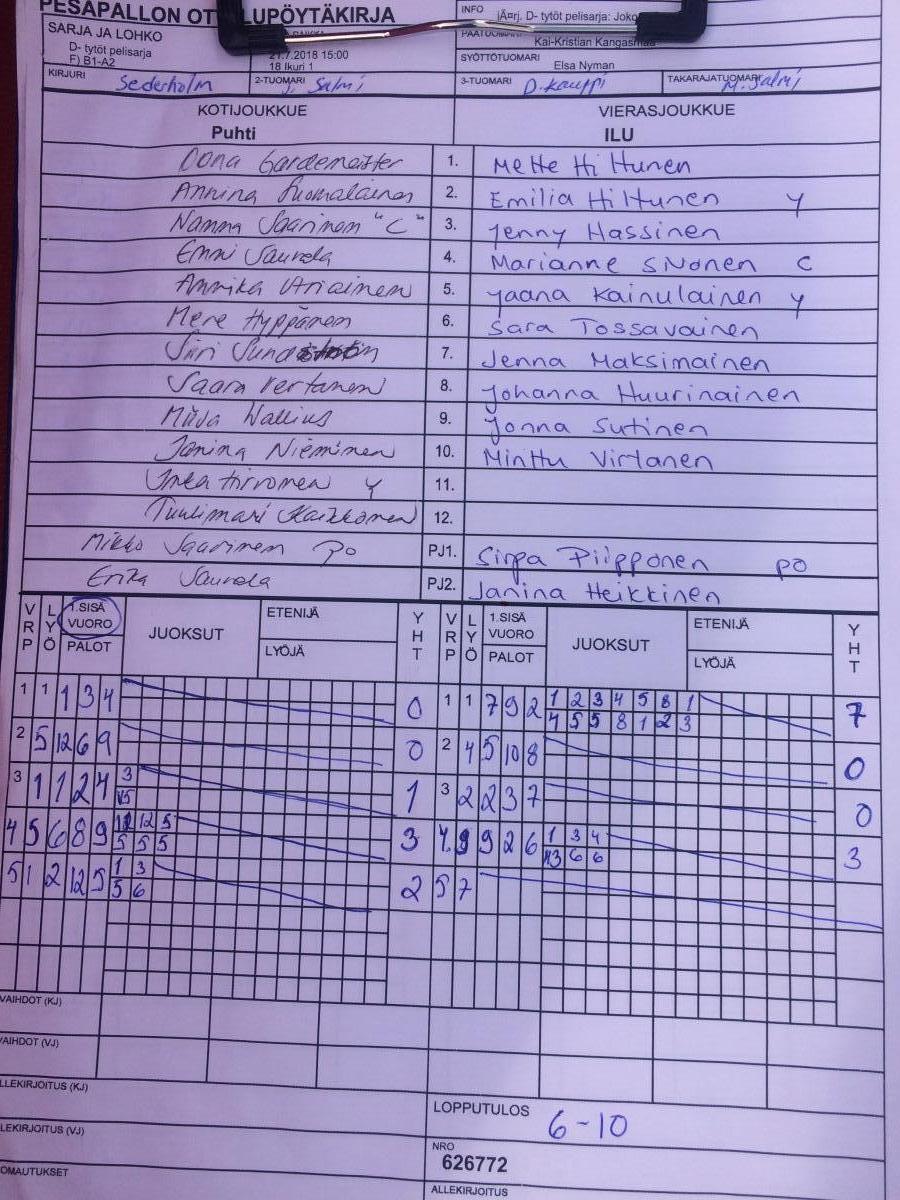 PESÄPALLON OT LUPÖYTÄKIRJA
INFO
D- tytöt pelisarja: Joko
SARJA JA LOHKO
D- tytöt pelisarja
F) B1-A2
21.7.2018 15:00
18 Ikuri 1
PÄÄTUOMARI
Kai-Kristian Kangasmaa
SYÖTTÖTUOMARI
Elsa Nyman
KIRJURI Sederholm 2-TUOMARI J. Salmi 3-TUOMARI D. Kauppi TAKARAJATUOMARI M. Salmi
KOTIJOUKKUE VIERASJOUKKUE
Puhti ILU
Oona Gardemeister 1. Mette Hiltunen
Annina Suomalainen 2. Emilia Hiltunen y
Nanna Saarinen "C" 3. Jenny Hassinen
Emmi Saurela 4. Marianne Sivonen C
Annika Utriainen 5. Jaana Kainulainen y
Mere Hyppänen 6. Sara Tossavainen
Siiri 7. Jenna Maksimainen
Saara Kertanen 8. Johanna Huurinainen
Miisa Wallius 9. Jonna Sutinen
Janina Nieminen 10. Minttu Virtanen
Inka Hirvonen y 11.
Tuulimari Kaikkonen 12.
Mikko Saarinen po PJ1. Sirpa Piipponen po
Erika Saurela PJ2. Janina Heikkinen
VRP LYÖ 1.SISÄ VUORO PALOT JUOKSUT ETENIJÄ LYÖJÄ YHT VRP LYÖ 1.SISÄ VUORO PALOT JUOKSUT ETENIJÄ LYÖJÄ YHT
1 1 1 3 4 0 1 1 7 9 2 1 2 3 4 5 8 1 7
4 5 5 8 1 2 3
2 5 12 6 9 0 2 4 5 10 8 0
3 1 1 2 4 3 1 3 2 2 3 7 0
4 5 6 8 9 11 12 5 3 4. 9 9 2 6 1 3 4 3
5 5 5 6 6
5 1 2 12 5 1 3 2 5 7
5 6
VAIHDOT (KJ)
VAIHDOT (VJ)
ALLEKIRJOITUS (KJ)
LOPPUTULOS 6-10
ALLEKIRJOITUS (VJ)
NRO
626772
HUOMAUTUKSET
ALLEKIRJOITUS